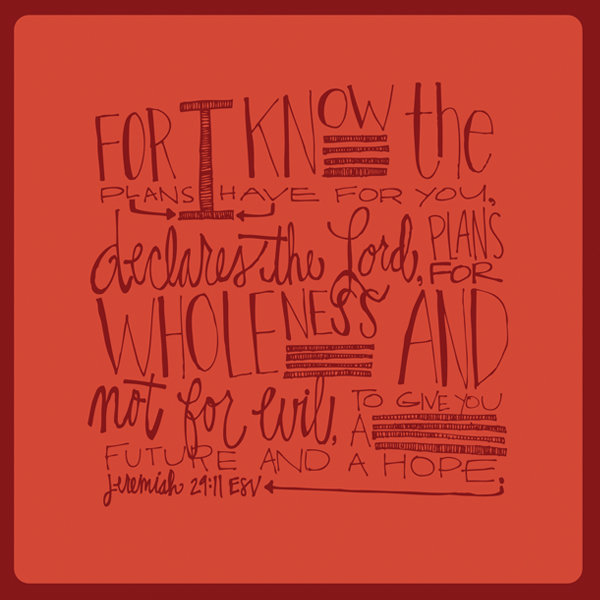 FOR I KNOW the
PLANS I HAVE FOR YOU,
declares the Lord, PLANS FOR
WHOLENESS AND
not for evil, TO GIVE YOU
A
FUTURE AND A HOPE.
Jeremiah 29:11 ESV